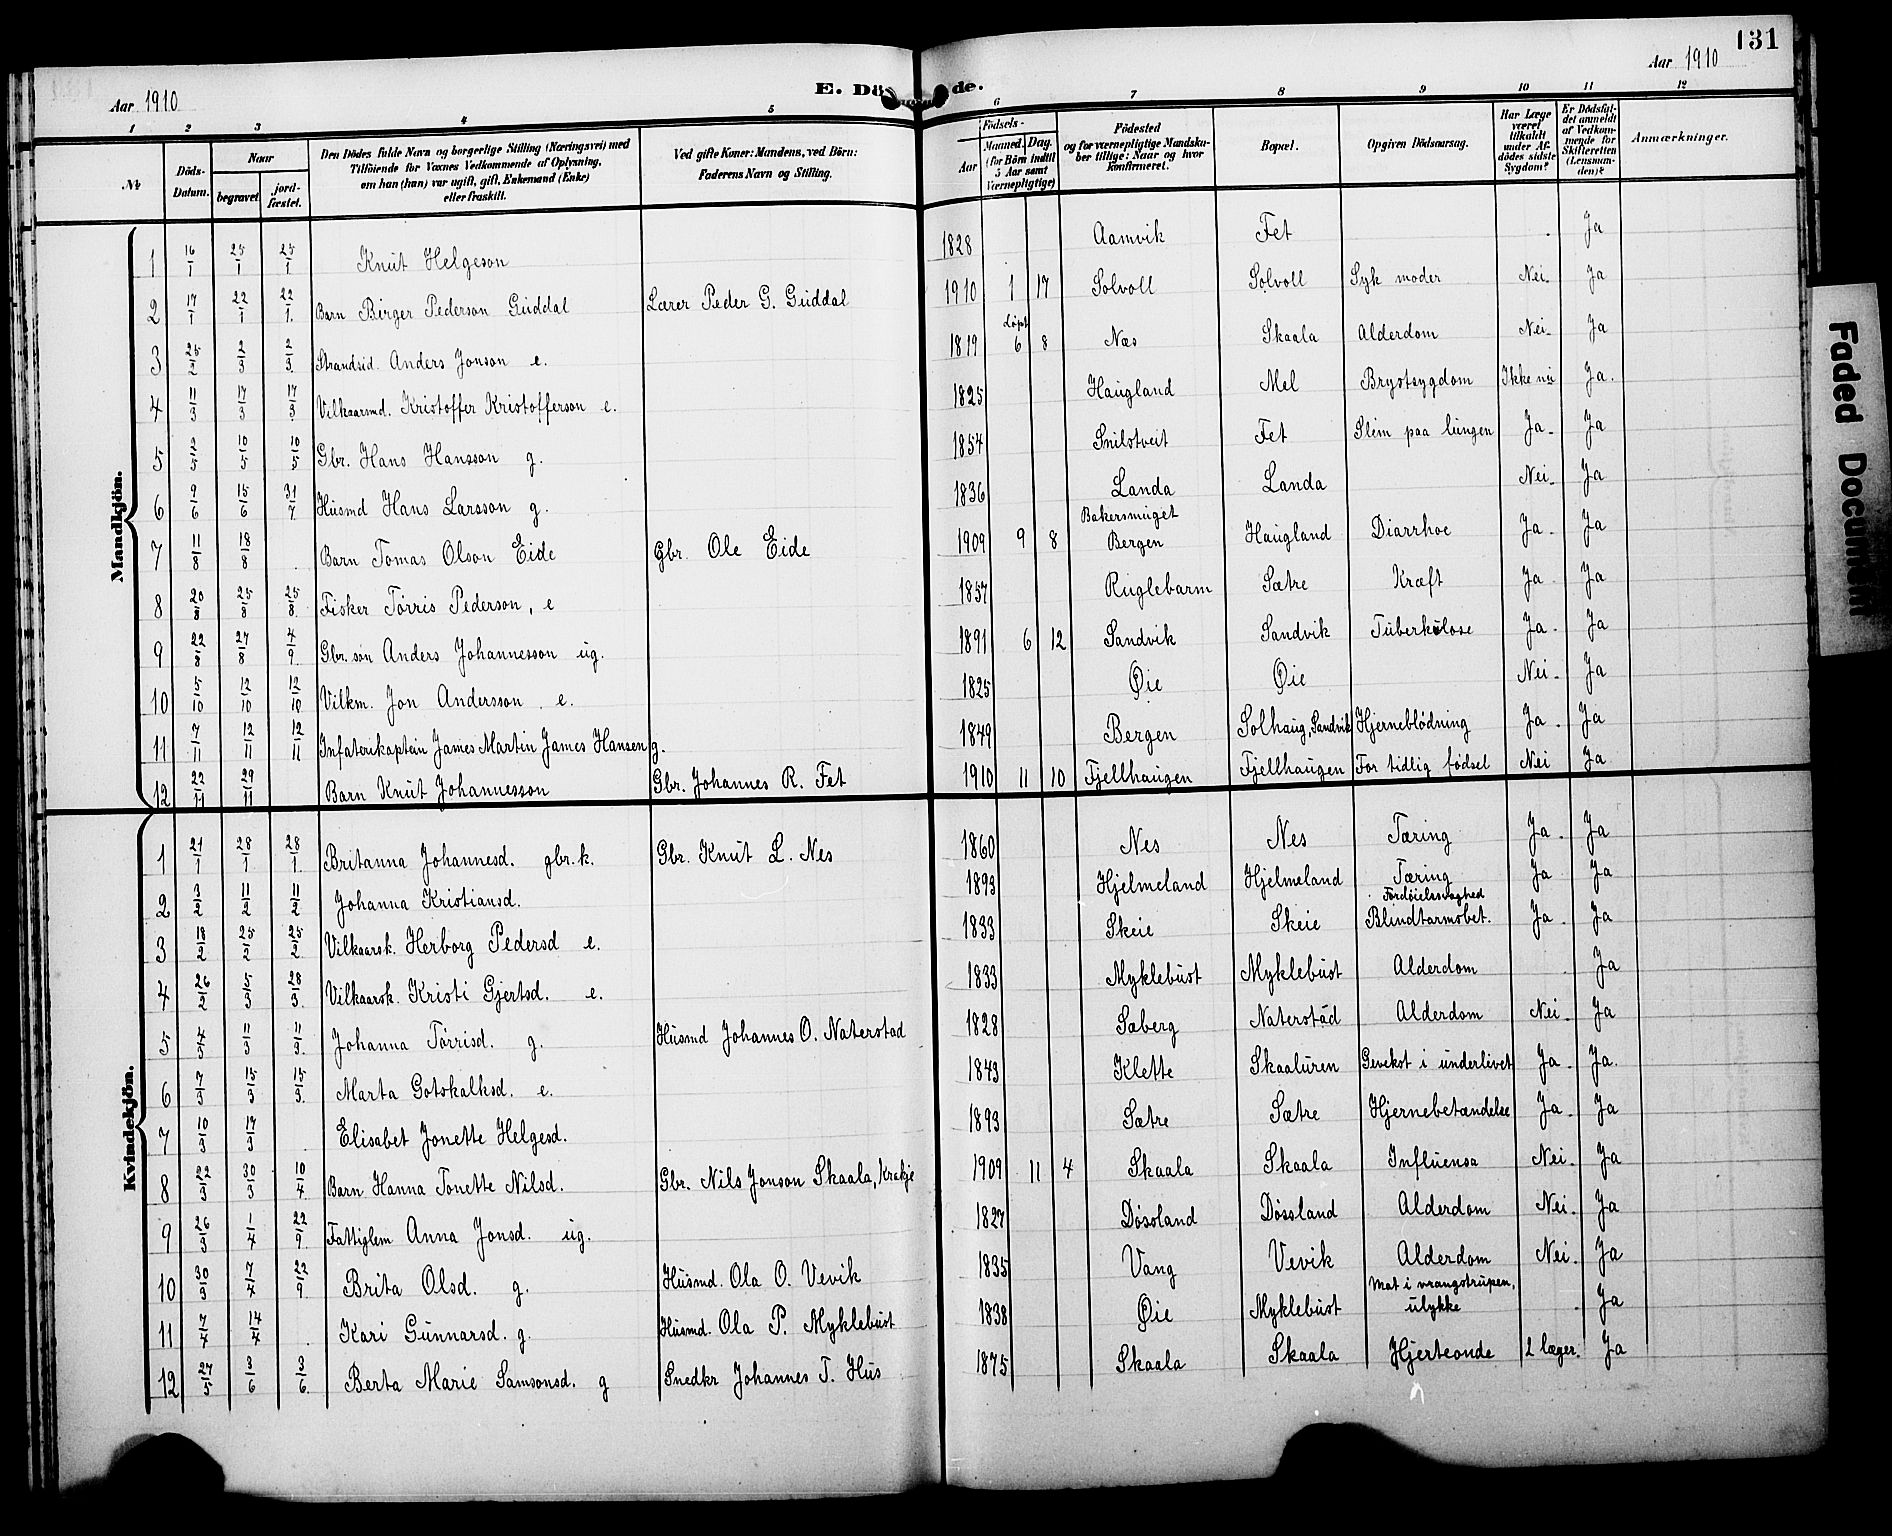 131
Aar 1910
E. Dö de.
Aar 1910
1 2 3 4 5 6 7 8 9 10 11 12
№ Döds-Datum. Naar begravet. jord-fæstet. Den Dödes fulde Navn og borgerlige Stilling (Næringsvei) med Tilföiende for Voxnes Vedkommende af Oplysning, om han (hun) var ugift, gift, Enkemand (Enke) eller fraskilt. Ved gifte Koner: Mandens, ved Börn: Faderens Navn og Stilling. Födsels- Aar Maaned. Dag. (for Börn indtil 5 Aar samt Værnepligtige) Födested og for værnepligtige Mandskaber tillige: Naar og hvor Konfirmeret. Bopæl. Opgiven Dödsaarsag. Har Læge været tilkaldt under Afdödes sidste Sygdom? Er Dödsfaldet anmeldt af Vedkommende for Skifteretten (Lensmanden)? Anmærkninger.
Mandkjön.
1 16/1 25/1 25/1 Knut Helgeson 1828 Aamvik Fet Ja
2 17/1 22/1 22/1. Barn Birger Pederson Guddal Lærer Peder G. Guddal 1910 1 17 Solvoll Solvoll Syk moder Nei Ja
3 25/2 2/3 2/3. Strandsid. Anders Jonson e. 1819 døpt 6 8 Næs Skaala Alderdom Nei Ja
4 11/3 17/3 17/3 Vilkaarsmd. Kristoffer Kristofferson e. 1825 Haugland Mel Brystsygdom Ikke nu Ja.
5 2/5 10/5 10/5 Gbr. Hans Hansson g. 1854 Snilstveit Fet Slem paa lungen Ja Ja
6 9/6 15/6 31/7 Husmd Hans Larsson g. 1836 Landa Landa Nei Ja
7 11/8 18/8 Barn Tomas Olson Eide Gbr. Ole Eide 1909 9 8 Bakersmuget Bergen Haugland Diarrhoe Ja Ja
8 20/8 25/8 25/8. Fisker Tørris Pederson, e 1857 Ruglebarm Sætre Kræft Ja Ja
9 22/8 27/8 4/9. Gbr. søn Anders Johannesson ug. 1891 6 12 Sandvik Sandvik Tuberkulose Ja Ja
10 5/10 12/10 12/10 Vilkm. Jon Andersson e. 1825 Øie Øie Nei Ja
11 7/11 12/11 12/11 Infaterikaptein James Martin James Hansen g. 1849 Bergen Solhaug, Sandvik Hjerneblødning Ja Ja
12 22/11 29/11 Barn Knut Johannesson Gbr. Johannes R. Fet 1910 11 10 Fjellhaugen Fjellhaugen For tidlig fødsel Nei Ja
Kvindekjön.
1 21/1 28/1 28/1. Britanna Johannesd. gbr.k. Gbr. Knut L. Nes 1860 Nes Nes Tæring Ja Ja
2 3/2 11/2 11/2 Johanna Kristiansd. 1893 Hjelmeland Hjelmeland Tæring Ja Ja
3 18/2 25/2 25/2 Vilkaarsk. Herborg Pedersd e. 1833 Skeie Skeie Fordøielsesvaghed Blindtarmsbet. Ja Ja
4 26/2 5/3 28/3. Vilkaarsk. Kristi Gjertsd. e. 1833 Myklebust Myklebust Alderdom Ja
5 4/3 11/3 11/3. Johanna Tørrisd. g. Husmd Johannes O. Naterstad 1828 Sæberg Naterstad Alderdom Nei Ja
6 7/3 15/3 15/3. Marta Gotskalksd. e. 1843 Klette Skaaluren Gevekst i underlivet Ja Ja.
7 10/3 17/3 Elisabet Jonette Helgesd. 1893 Sætre Sætre Hjernebetændelse Ja Ja
8 22/3 30/3 10/4 Barn Hanna Tonette Nilsd. Gbr. Nils Jonson Skaala, Krakje 1909 11 4 Skaala Skaala Influensa Nei Ja
9 26/3 1/4 22/9. Fattiglem Anna Jonsd. ug. 1827 Døssland Døssland Alderdom Nei Ja
10 30/3 7/4 22/9. Brita Olsd. g. Husmd. Ola O. Vevik 1835 Vang Vevik Alderdom Nei Ja
11 7/4 14/4 Kari Gunnarsd. g. Husmd. Ola P. Myklebust 1838 Øie Myklebust Mat i vrangstrupen, ulykke Ja
12 27/5 3/6 3/6. Berta Marie Samsonsd. g Snedkr Johannes T. Hus 1875 Skaala Skaala Hjerteonde 2 læger. Ja
Faded Document